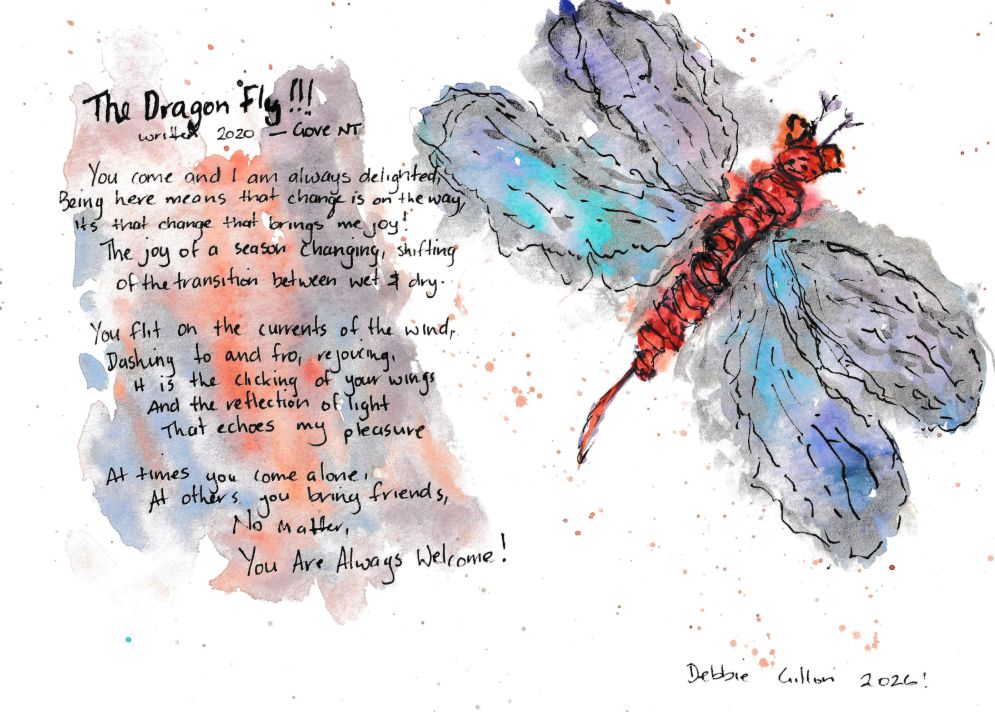 The Dragon Fly!!!
written 2020 – Gove NT
You come and I am always delighted,
Being here means that change is on the way,
Its that change that brings me joy!
The joy of a season changing, shifting
of the transition between wet & dry.
You flit on the currents of the wind,
Dashing to and fro, rejoicing,
It is the clicking of your wings
And the reflection of light
That echoes my pleasure
At times you come alone,
At others you bring friends,
No Matter,
You Are Always Welcome!
Debbie 2026!